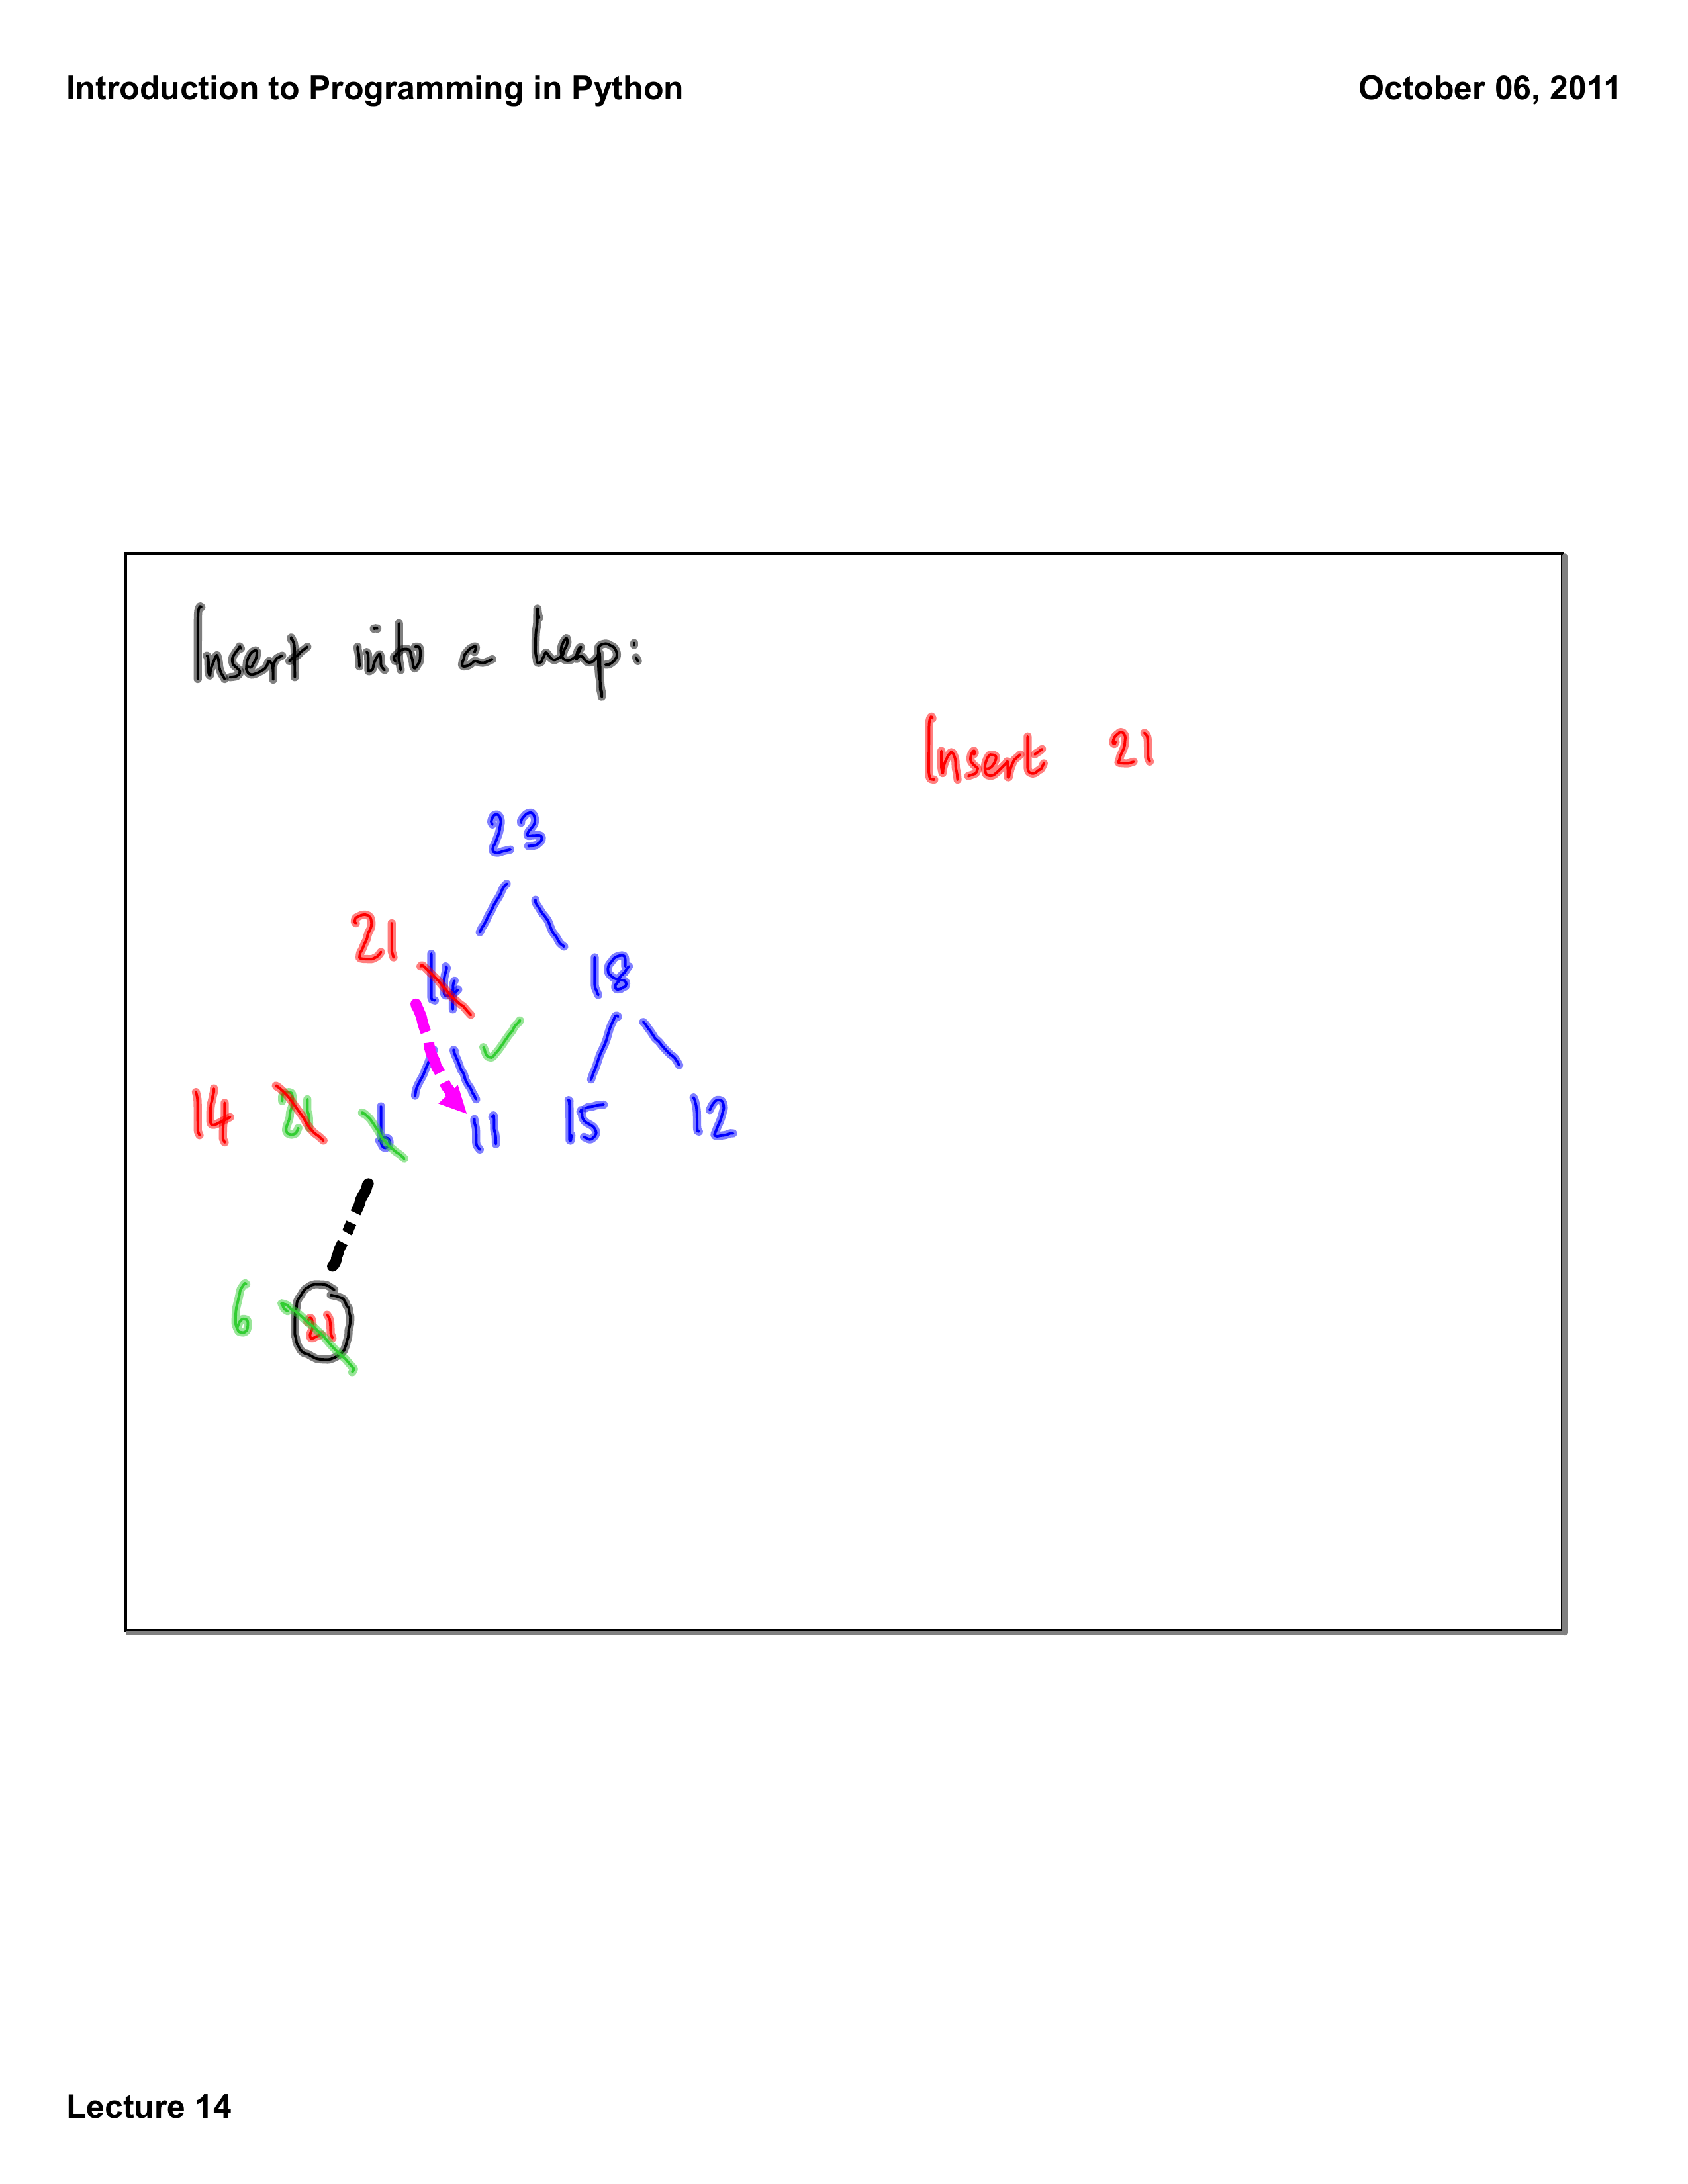 Introduction to Programming in Python October 06, 2011
Insert into a heap:
Insert 21
23
21 14 18
14 21 6 11 15 12
6 21
Lecture 14